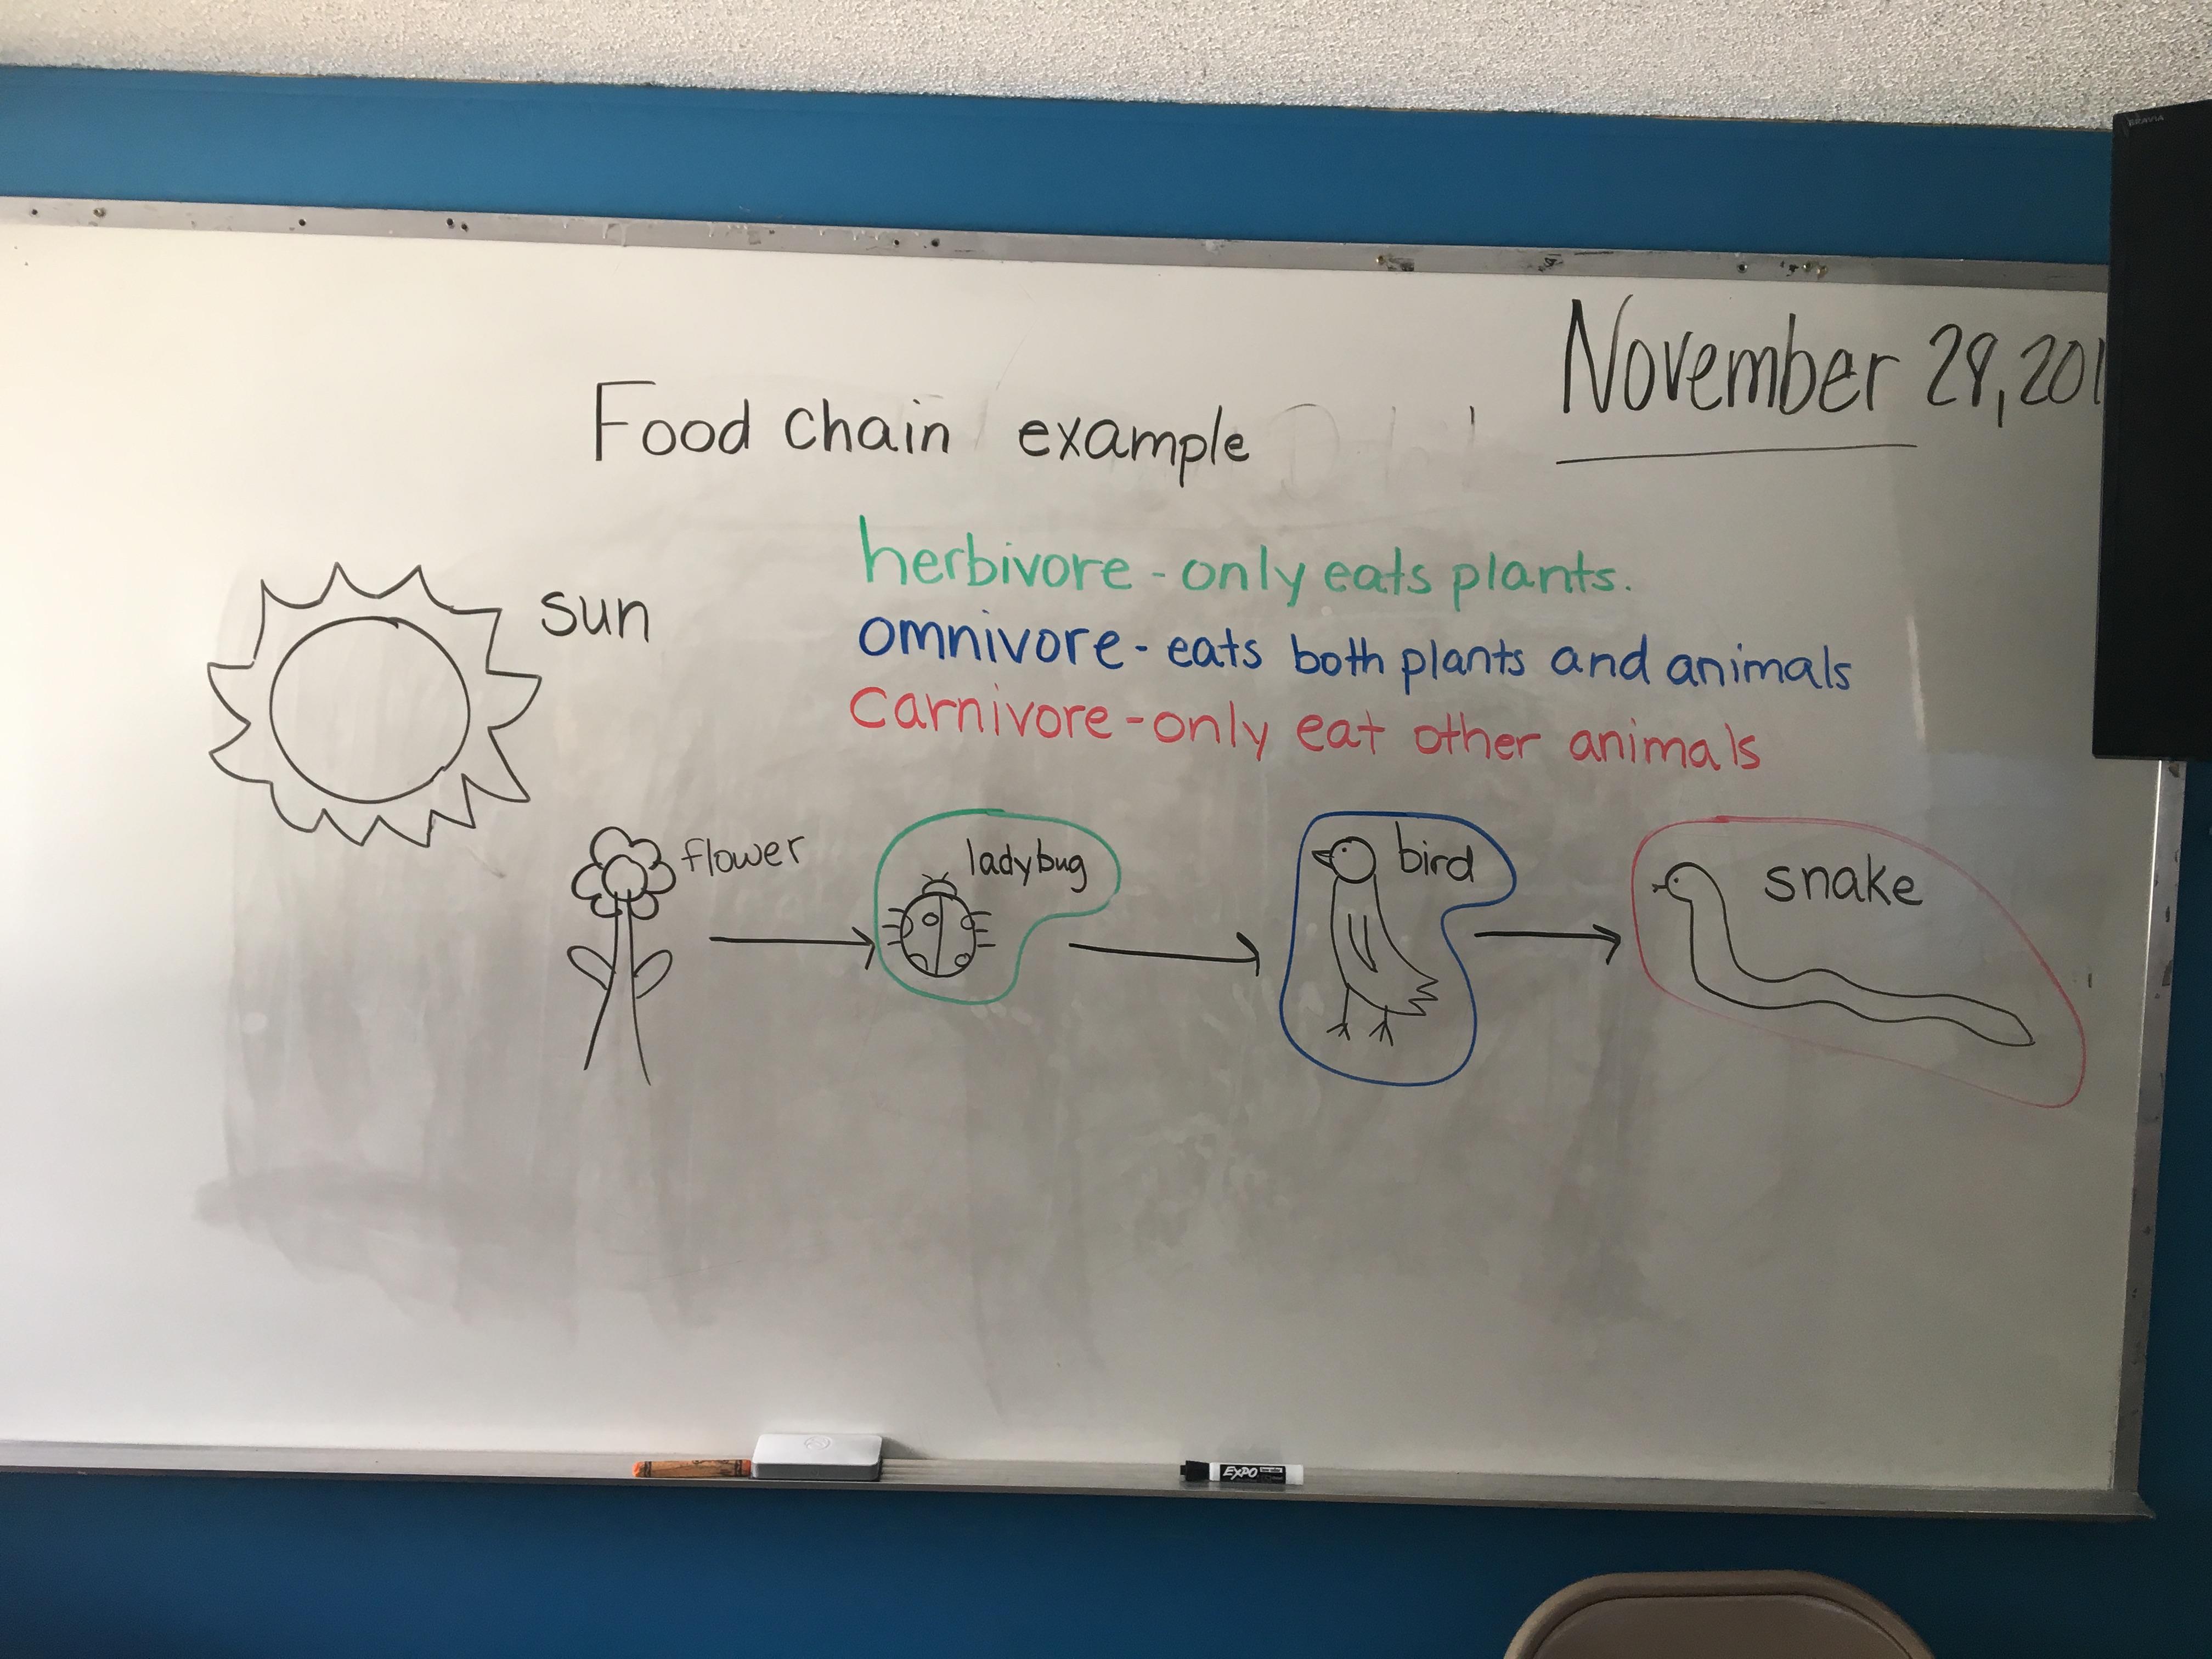 BRAVIA
November 28, 201
Food chain example
herbivore - only eats plants.
omnivore - eats both plants and animals
carnivore - only eat other animals
sun
flower
ladybug
bird
snake
EXPO